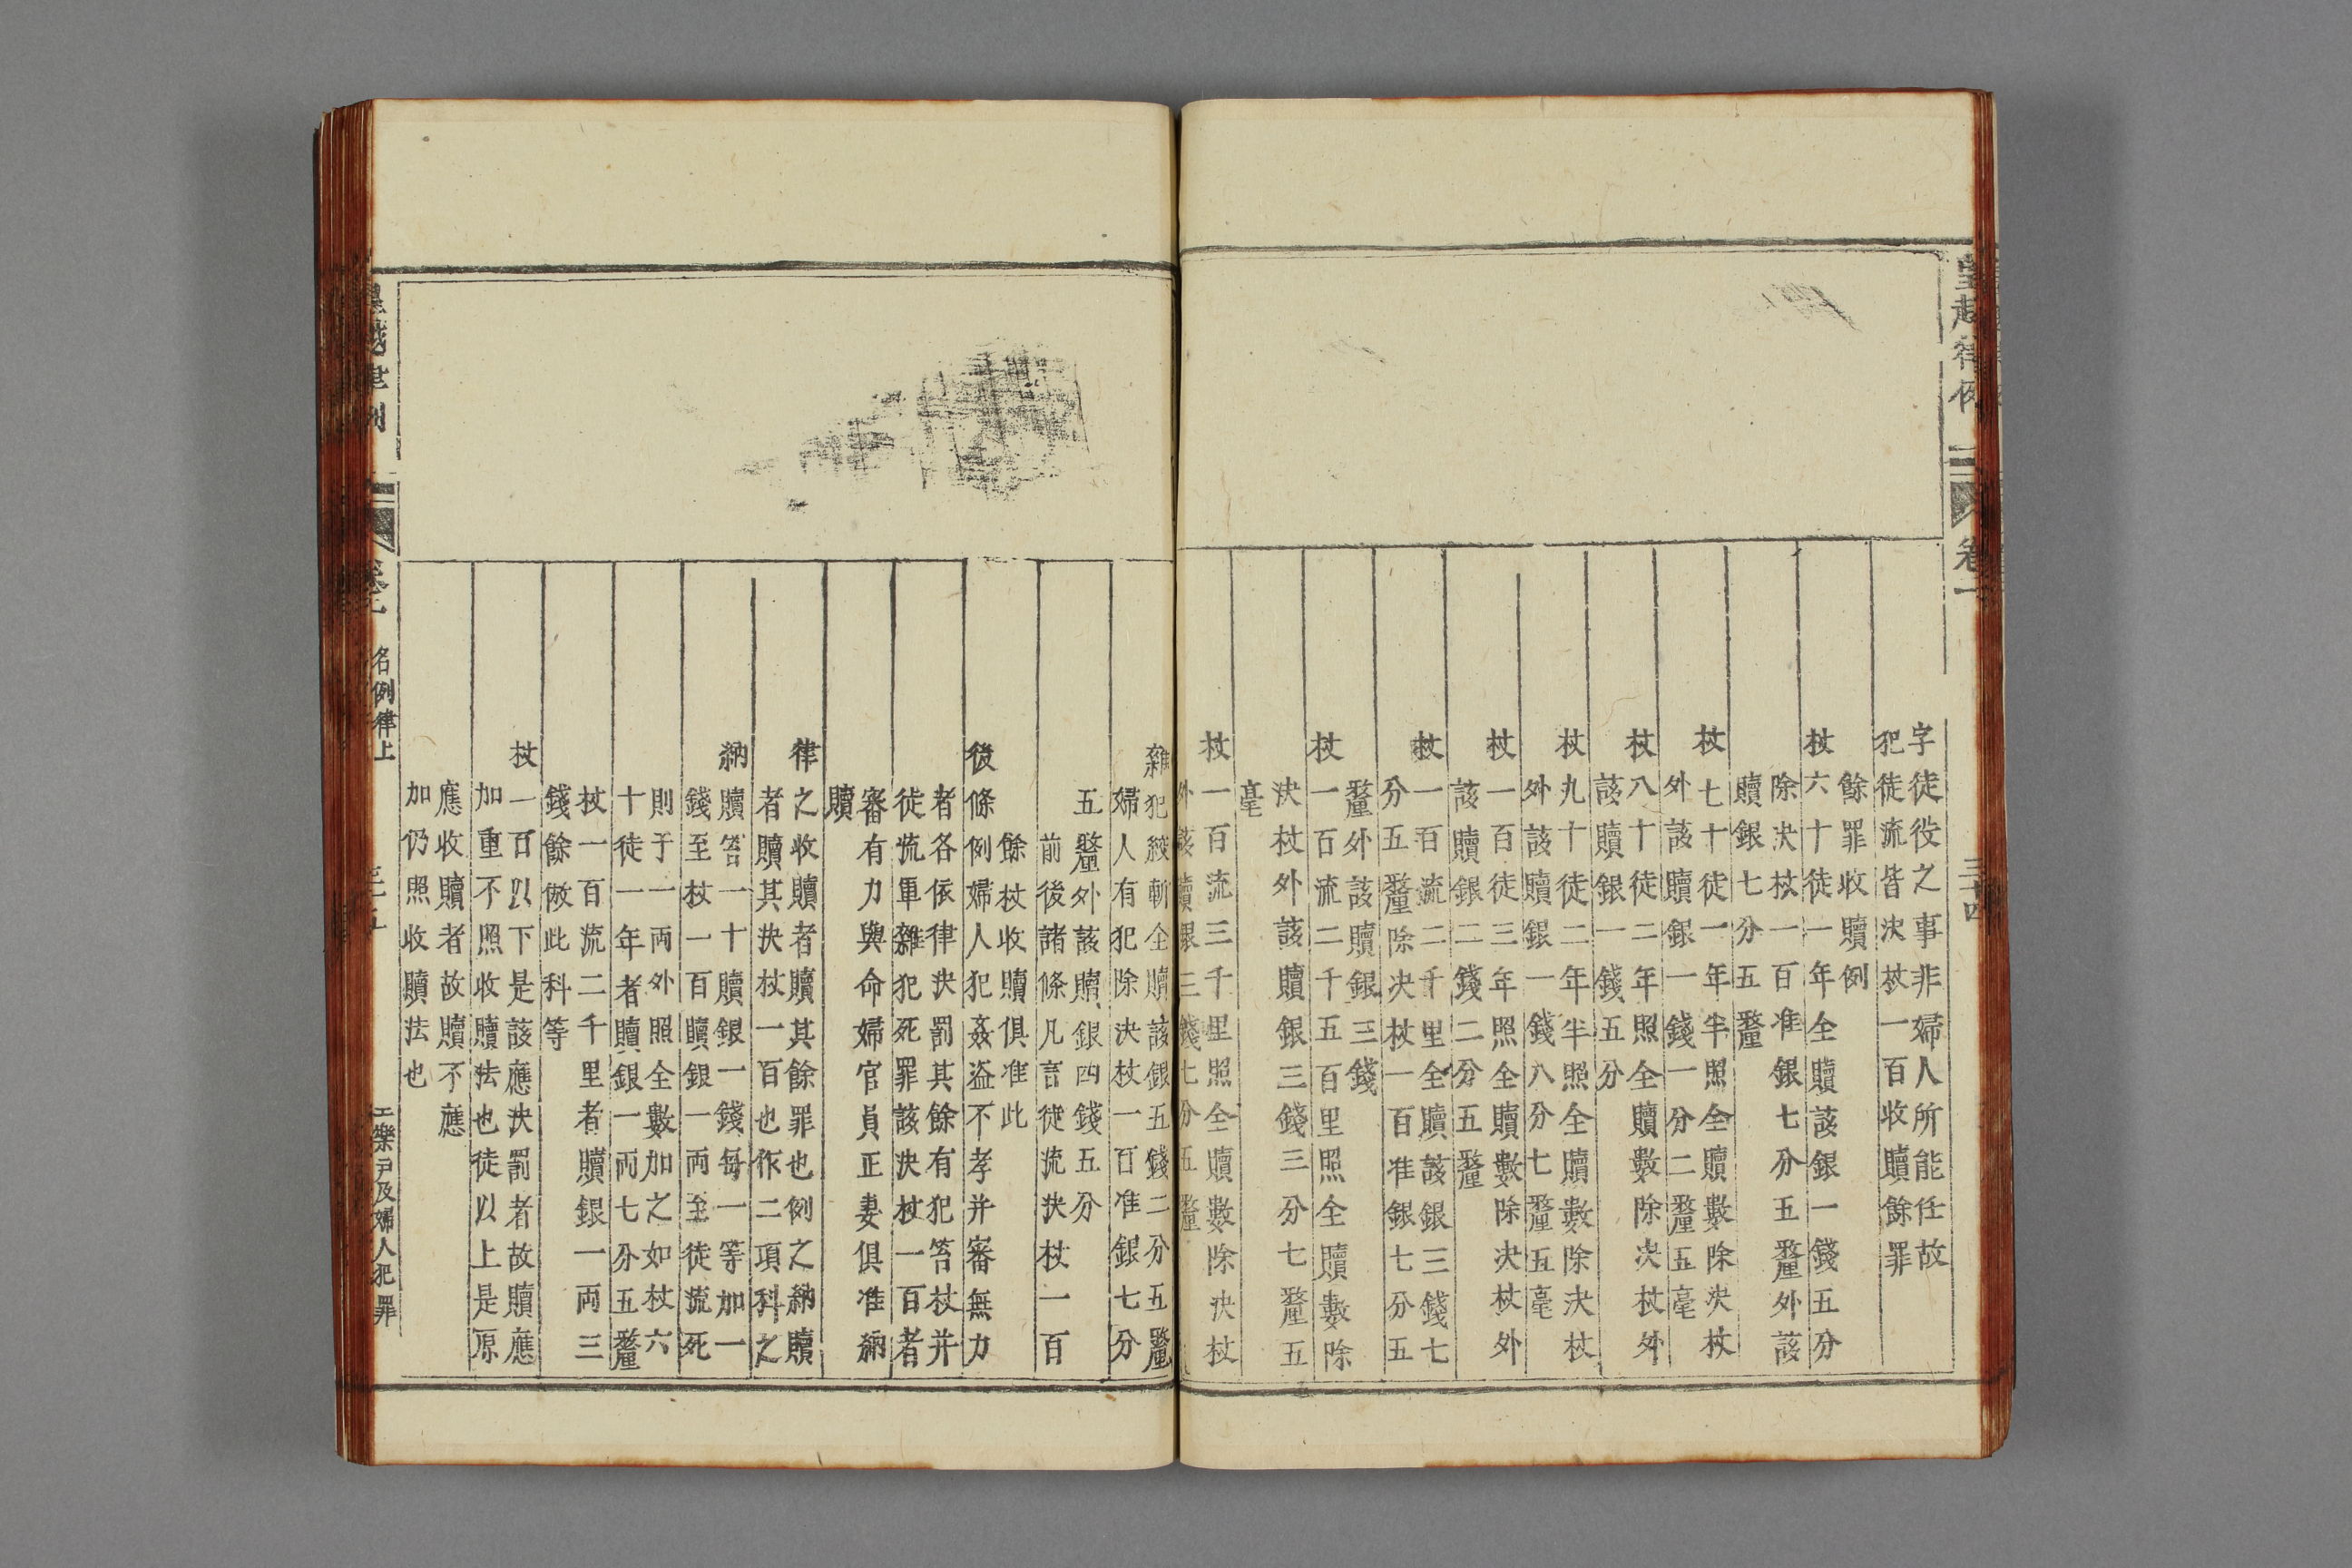 皇越律例
卷一
三十四
字徒役之事非婦人所能任故
犯徒流皆决杖一百收贖餘罪
餘罪收贖例
杖六十徒一年全贖該銀一錢五分
除决杖一百准銀七分五釐外該
贖銀七分五釐
杖七十徒一年半照全贖數除决杖
外該贖銀一錢一分二釐五毫
杖八十徒二年照全贖數除决杖外
該贖銀一錢五分
杖九十徒二年半照全贖數除决杖
外該贖銀一錢八分七釐五毫
杖一百徒三年照全贖數除决杖外
該贖銀二錢二分五釐
杖一百流二千里全贖該銀三錢七
分五釐除决杖一百准銀七分五
釐外該贖銀三錢
杖一百流二千五百里照全贖數除
决杖外該贖銀三錢三分七釐五
毫
杖一百流三千里照全贖數除决杖
外該贖銀三錢七分五釐
雜犯絞斬全贖該銀五錢二分五釐
婦人有犯除决杖一百准銀七分
五釐外該贖銀四錢五分
前後諸條凡言徒流决杖一百
餘杖收贖俱准此
後條例婦人犯姦盗不孝并審無力
者各依律决罰其餘有犯笞杖并
徒流軍雜犯死罪該决杖一百者
審有力與命婦官員正妻俱准納
贖
律之收贖者贖其餘罪也例之納贖
者贖其决杖一百也作二項科之
納贖笞一十贖銀一錢每一等加一
錢至杖一百贖銀一両至徒流死
則于一両外照全數加之如杖六
十徒一年者贖銀一両七分五釐
杖一百流二千里者贖銀一両三
錢餘倣此科等
杖一百以下是該應决罰者故贖應
加重不照收贖法也徒以上是原
應收贖者故贖不應
加仍照收贖法也
皇越律例
卷一
名例律上
三十五
工樂戸及婦人犯罪